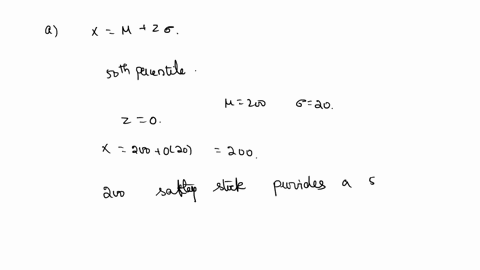 a) x = μ + z σ.
50th percentile.
μ = 200 σ = 20.
z = 0.
x = 200 + 0(20) = 200.
200 safety stock provides a s